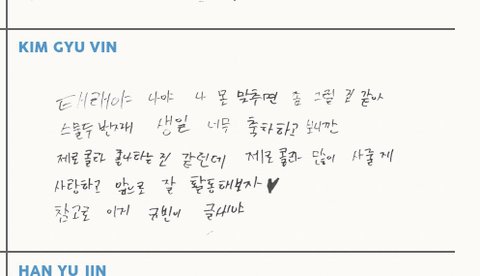 KIM GYU VIN
태래야 나야 나 못 맞추면 좀 그럴 것 같아
스물두 번째 생일 너무 축하하고
제로 콜라 좋아하는 것 같던데 제로 콜라 많이 사줄게
사랑하고 앞으로 잘 활동해보자 ♥
참고로 이거 규빈이 글씨야
HAN YU JIN